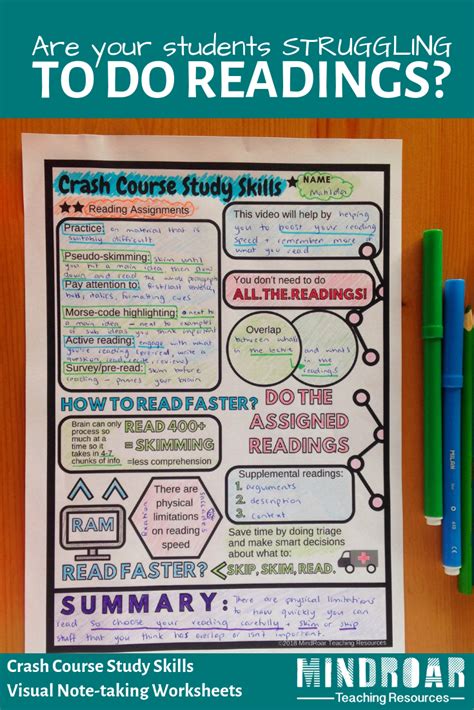 Are your students STRUGGLING
TO DO READINGS?
Crash Course Study Skills
NAME
Matilda
Reading Assignments
Practice: on material that is
suitably difficult
Pseudo-skimming: skim until
you hit a main idea then slow
down and read the
Pay attention to: first/last
bold, italics, formatting cues
Morse-code highlighting: next to
a main idea — next to examples
of sub ideas you think important
Active reading: engage with what
you're reading
question, read,
Survey/pre-read: skim before
reading – primes your brain
This video will help by helping
you to boost your reading
speed + remember more of
what you read
You don't need to do
ALL.THE.READINGS!
Overlap
between what's
in the lecture and what's
in the
readings
HOW TO READ FASTER?
DO THE
ASSIGNED
READINGS
Brain can only
process so
much at a
time so it
takes in 4-7
chunks of info
READ 400+
=SKIMMING
=less comprehension
Supplemental readings:
1. arguments
2. description
3. context
RAM
There are
physical
limitations
on reading
speed
fixation
saccades
Save time by doing triage
and make smart decisions
about what to:
READ FASTER?
< SKIP, SKIM, READ.
SUMMARY: There are physical limitations
to how quickly you can
read so choose your reading carefully + skim or skip
stuff that you think has overlap or isn't important.
©2018 MindRoar Teaching Resources
MILAN
610
Crash Course Study Skills
Visual Note-taking Worksheets
MINDROAR
Teaching Resources